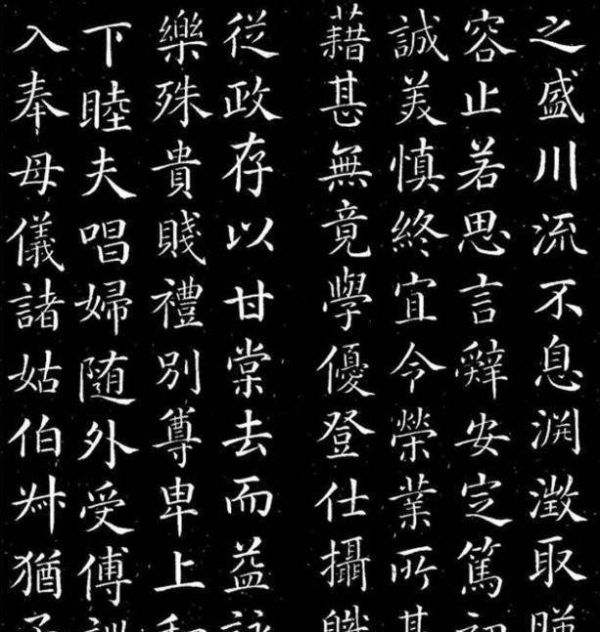 之盛川流不息渕澂取暎
容止若思言辭安定篤初
誠美慎終宜令榮業所基
藉甚無竟學優登仕攝職
從政存以甘棠去而益詠
樂殊貴賤禮別尊卑上和
下睦夫唱婦随外受傅訓
入奉母儀諸姑伯叔猶子